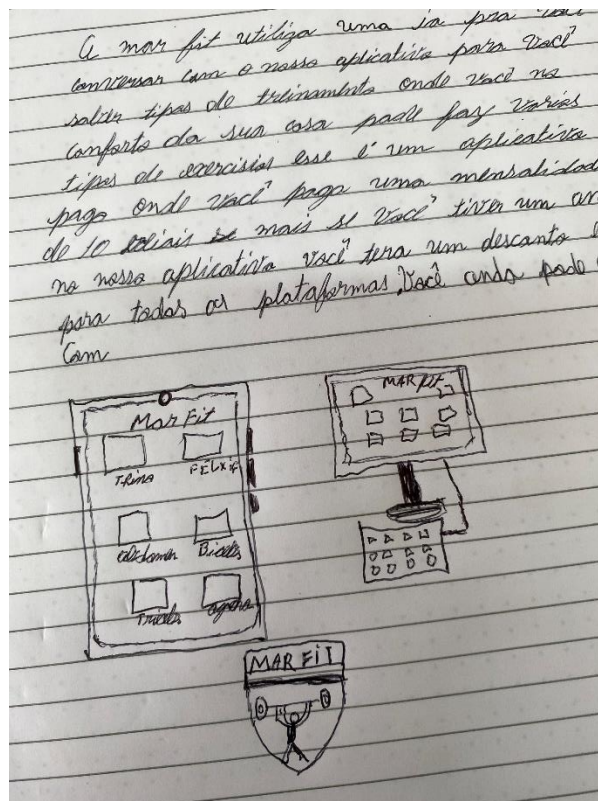 A mar fit utiliza uma ia pra você
conversar com o nosso aplicativo para você
saber tipos de treinamento onde você no
conforto da sua casa pode faz varios
tipos de exercisios esse é um aplicativo
pago onde você paga uma mensalidad
de 10 mais se você tiver um
no nosso aplicativo você tera um desconto
para todas as plataformas. Você anda pode
Com
Mar Fit
MAR FIT
Biceps
MAR FIT